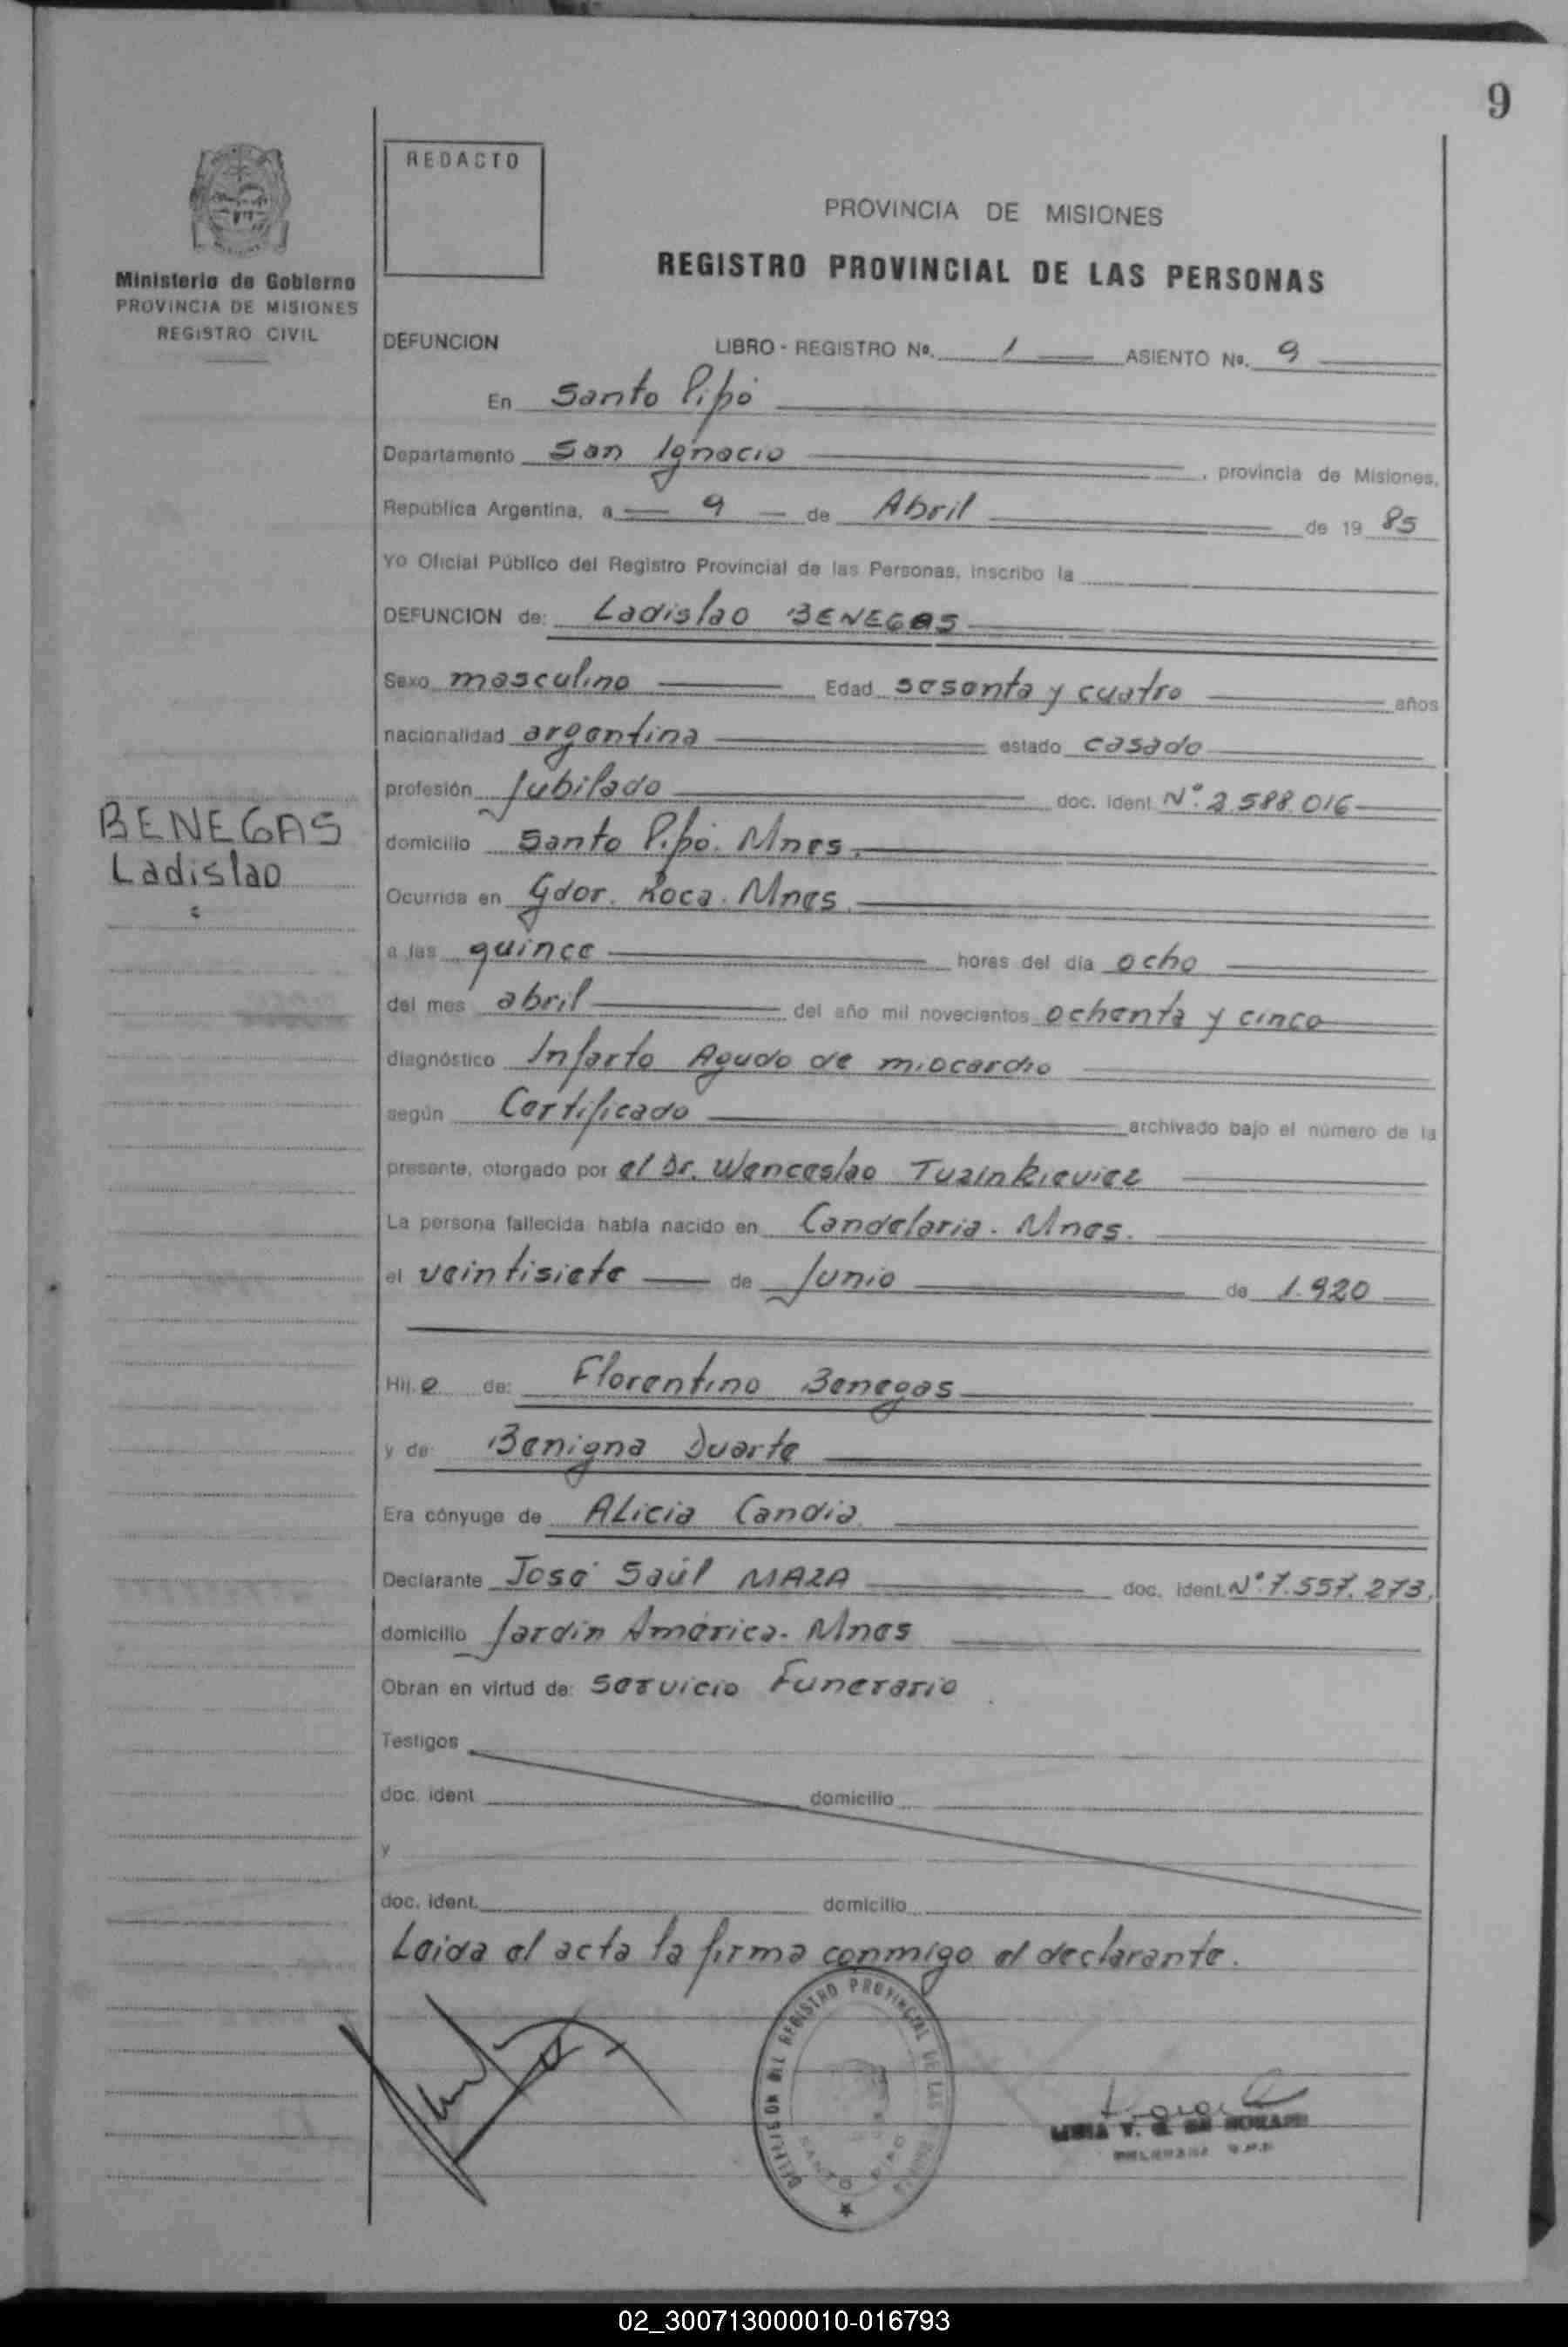 9
REDACTO
PROVINCIA DE MISIONES
REGISTRO PROVINCIAL DE LAS PERSONAS
Ministerio de Gobierno
PROVINCIA DE MISIONES
REGISTRO CIVIL
DEFUNCION LIBRO - REGISTRO Nº. 1 ASIENTO Nº. 9
En Santo Pipó
Departamento San Ignacio, provincia de Misiones,
República Argentina, a 9 de Abril de 19 85
Yo Oficial Público del Registro Provincial de las Personas, inscribo la
DEFUNCION de: Ladislao BENEGAS
Sexo masculino Edad sesenta y cuatro años
nacionalidad argentina estado casado
profesión Jubilado doc. ident. Nº. 2.588.016
BENEGAS
Ladislao
domicilio Santo Pipó. Mnes.
Ocurrida en Gdor. Roca. Mnes.
a las quince horas del día ocho
del mes abril del año mil novecientos ochenta y cinco
diagnóstico Infarto Agudo de miocardio
según Certificado archivado bajo el número de la
presente, otorgado por el Dr. Wenceslao Tuzinkieviez
La persona fallecida había nacido en Candelaria. Mnes.
el veintisiete de Junio de 1.920
Hij o de: Florentino Benegas
y de: Benigna Duarte
Era cónyuge de Alicia Candia
Declarante José Saúl MAZA doc. ident. Nº 7.557.273,
domicilio Jardín América. Mnes
Obran en virtud de: Servicio Funerario
Testigos
doc. ident domicilio
y
doc. ident. domicilio
Leida el acta la firma conmigo el declarante.
DEL REGISTRO PROVINCIAL DE LAS
SANTO PIPO
02_300713000010-016793